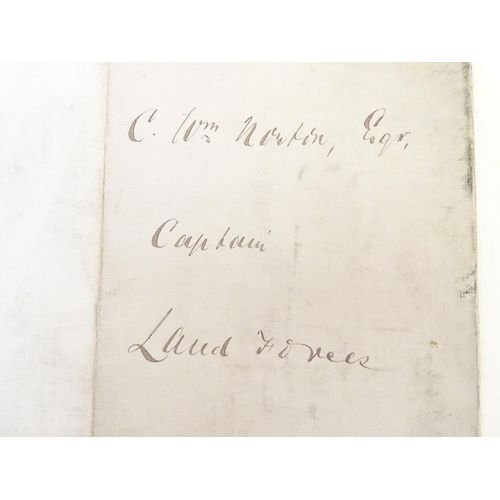 C. Wm Norton, Esqr,
Captain
Land Forces